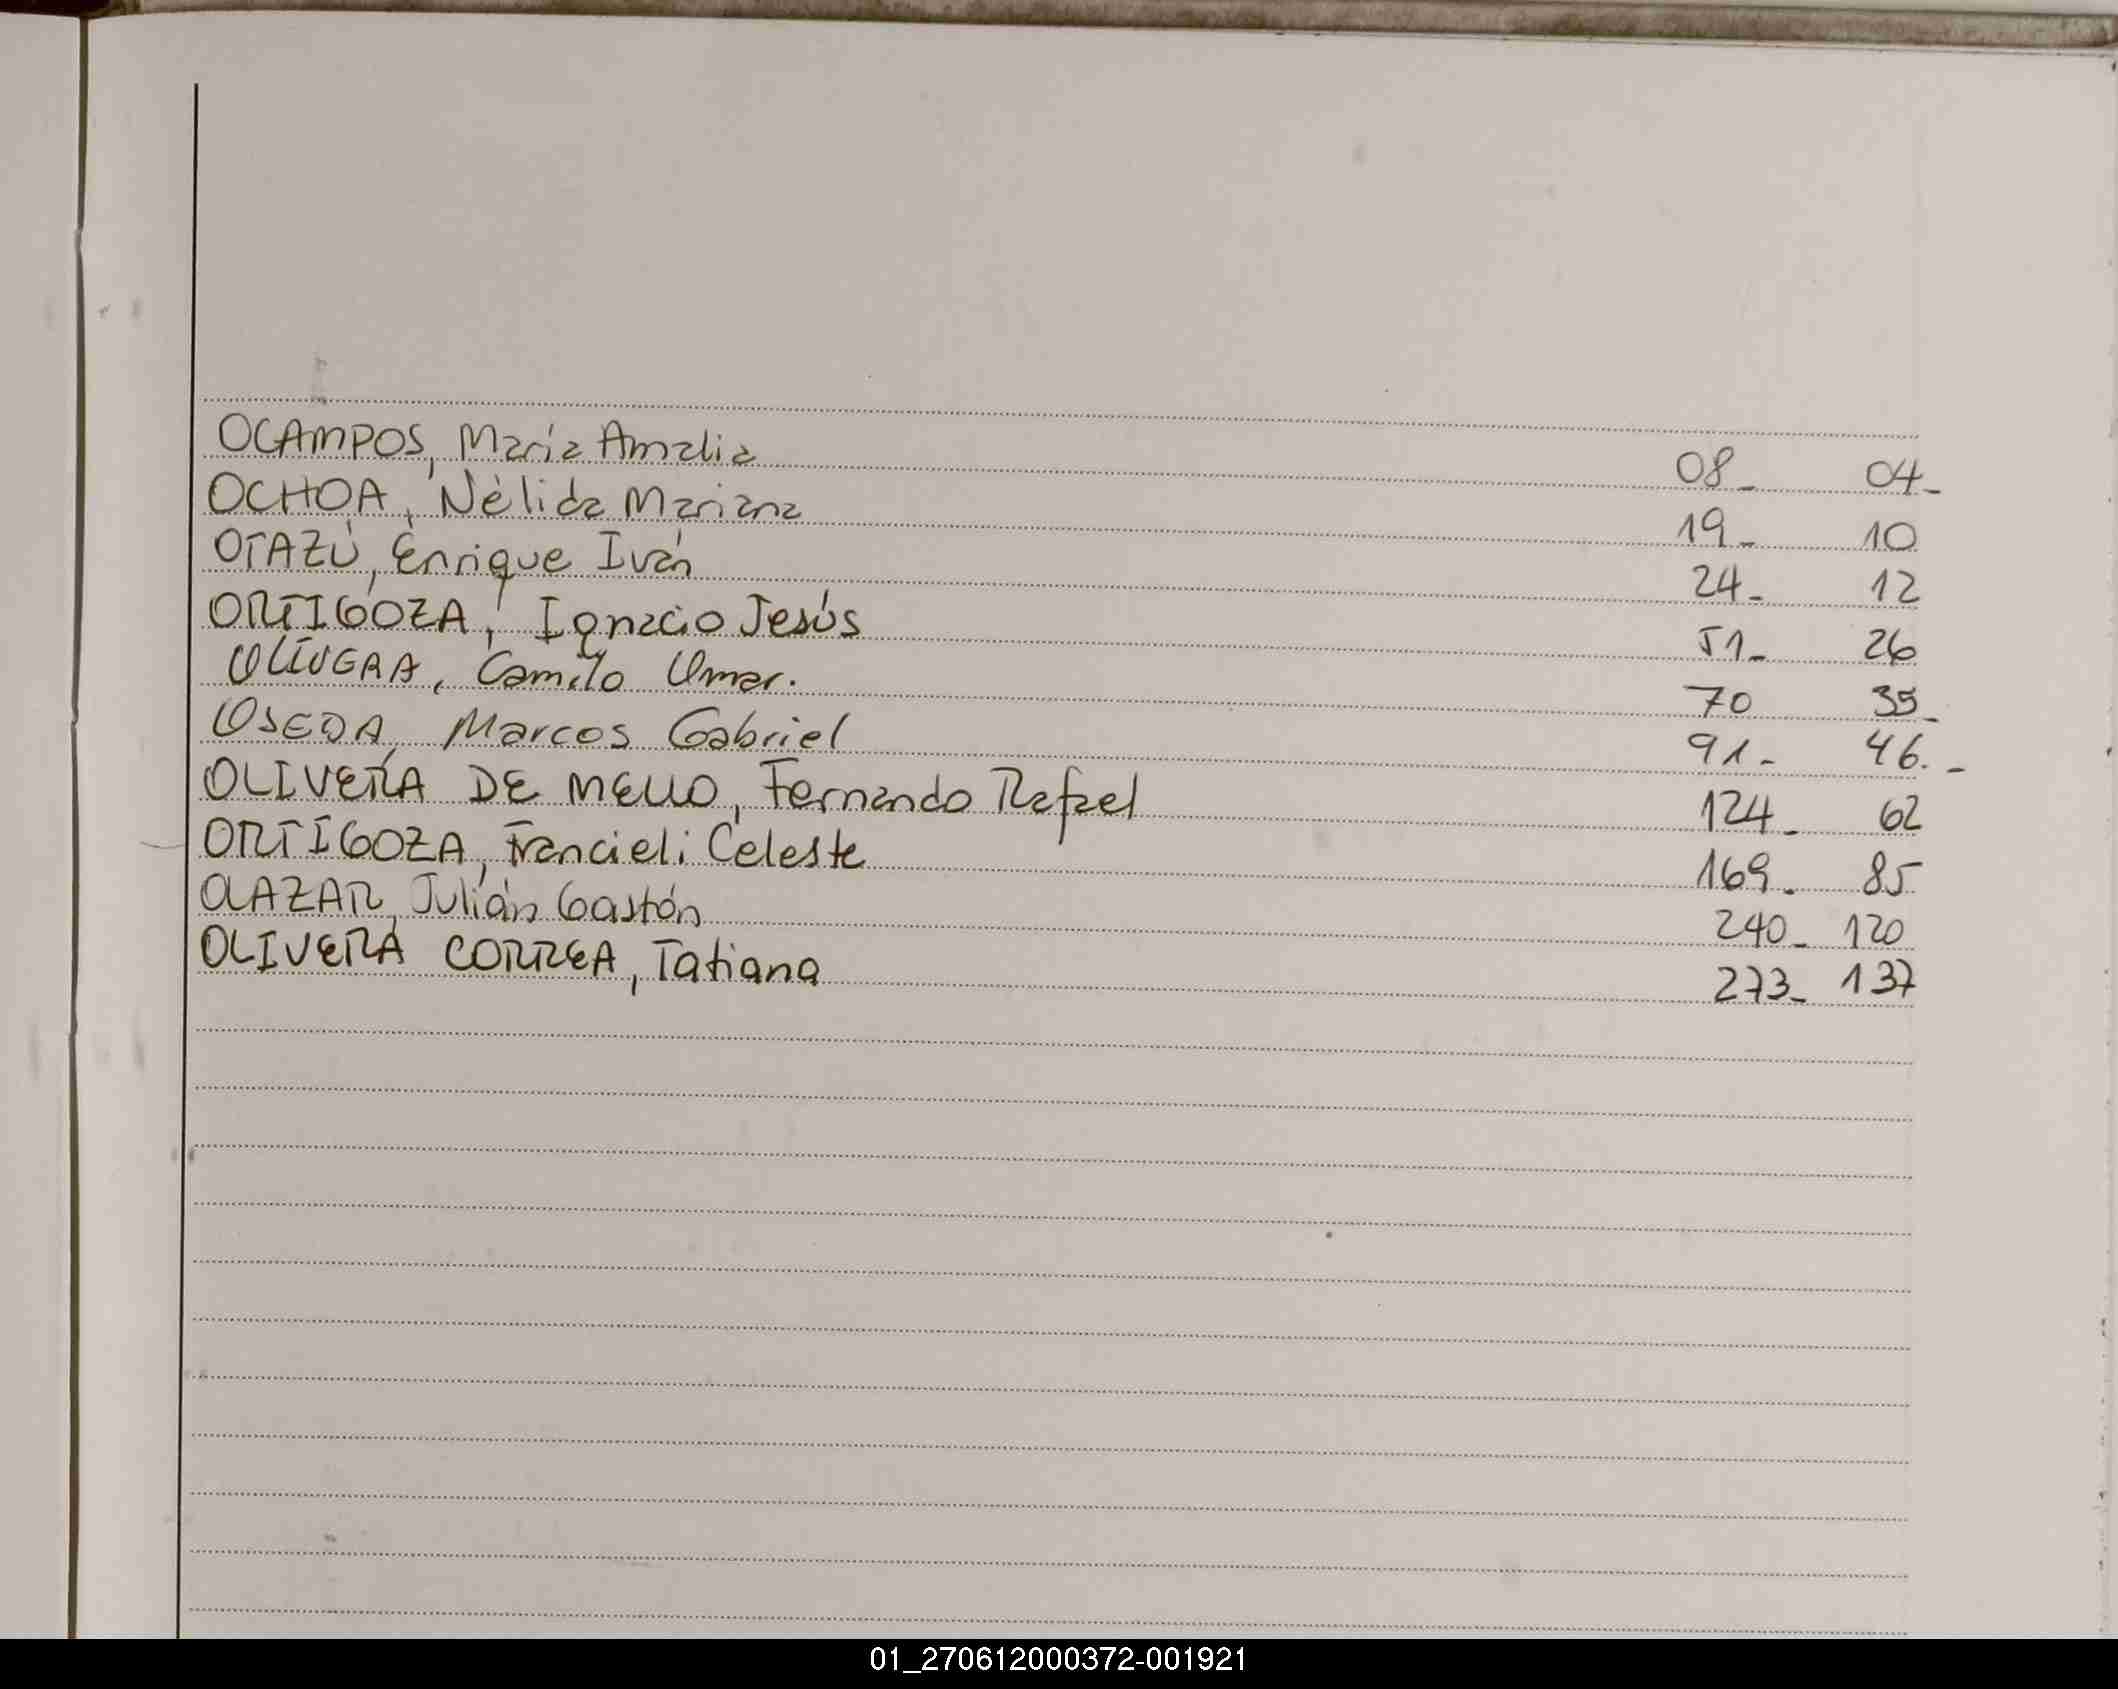 OCAMPOS, María Amalia 08_ 04_
OCHOA, Nélida Mariana 19_ 10
OTAZÚ, Enrique Iván 24_ 12
ORTIGOZA, Ignacio Jesús 51_ 26
OLIVERA, Camilo Omar. 70 35_
OSEDA, Marcos Gabriel 91_ 46._
OLIVERA DE MELLO, Fernando Rafael 124_ 62
ORTIGOZA, Francieli Celeste 169_ 85
OLAZAR, Julián Gastón 240_ 120
OLIVERA CORREA, Tatiana 273_ 137
01_270612000372-001921